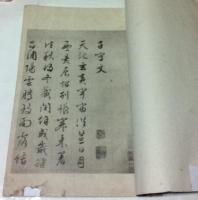 千字文
天地玄黃宇宙洪荒日月
盈昃辰宿列張寒來暑
往秋收冬藏閏餘成歲律
呂調陽雲騰致雨露結